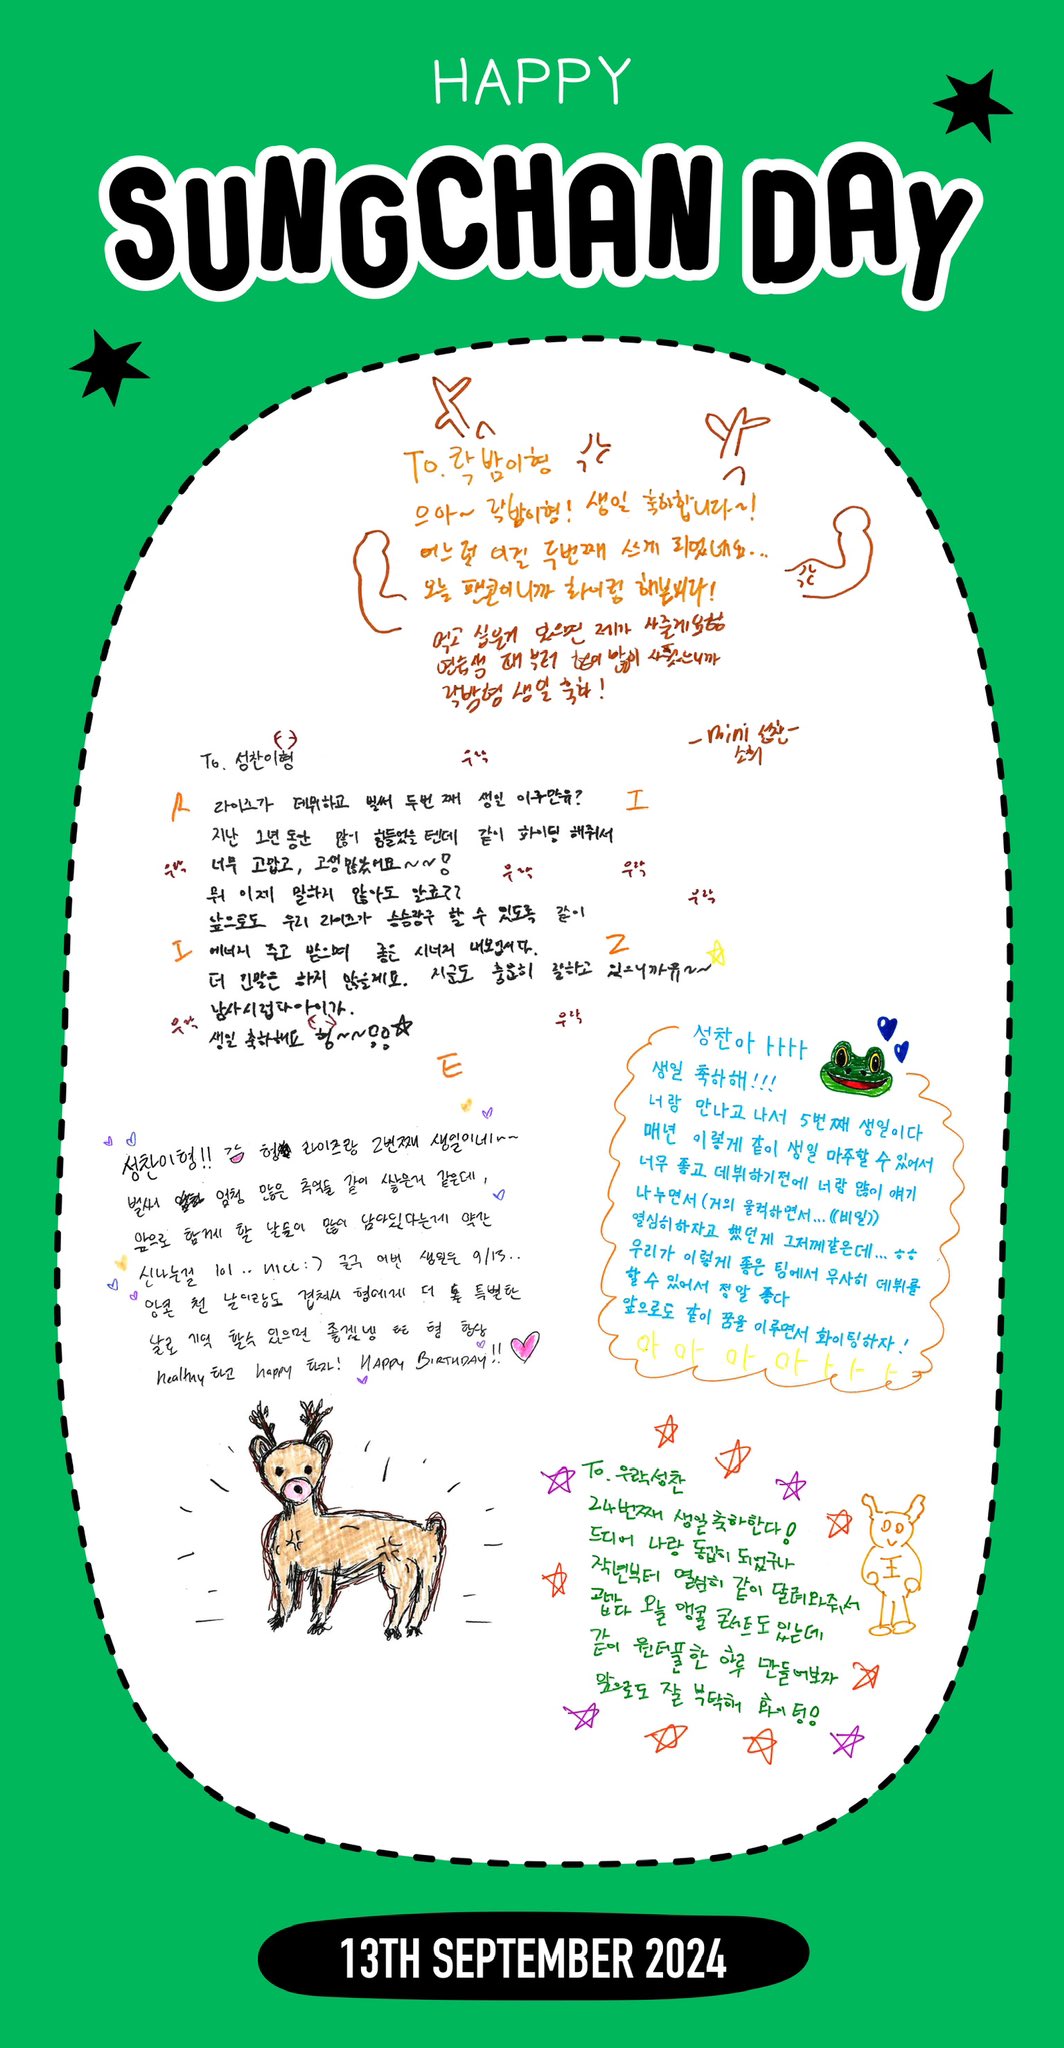 HAPPY
SUNGCHAN DAY
To. 락밤이형
으아~ 락밤이형! 생일 축하합니다~!
어느덧 이걸 두번째 쓰게 되었네요...
오늘 팬콘이니까 화이팅 해봅시다!
먹고 싶은거 있으면 제가 사줄게요형
연습생 때부터 형이 많이 사줬으니까
락밤형 생일 축하!
-mini 성찬-
소희
To. 성찬이형
우락
R
I
라이즈가 데뷔하고 벌써 두번 째 생일 이구만유?
지난 1년 동안 많이 힘들었을 텐데 같이 화이팅 해줘서
우락
너무 고맙고, 고생 많았어요~~!
우락
우락
뭐 이제 말하지 않아도 알죠??
우락
앞으로도 우리 라이즈가 승승장구 할 수 있도록 같이
I
에너지 주고 받으며 좋은 시너지 내보입시다.
Z
더 긴말은 하지 않을게요. 지금도 충분히 잘하고 있으니까유~~
남사시럽다아이가.
우락
생일 축하해요 형~~!!
우락
E
성찬아ㅏㅏㅏㅏ
생일 축하해!!!
너랑 만나고 나서 5번째 생일이다
매년 이렇게 같이 생일 마주할 수 있어서
너무 좋고 데뷔하기전에 너랑 많이 얘기
나누면서(거의 울먹하면서...((비밀))
열심히하자고 했던게 그저께같은데...ㅎㅎ
우리가 이렇게 좋은 팀에서 무사히 데뷔를
할 수 있어서 정말 좋다
앞으로도 같이 꿈을 이루면서 화이팅하자!
아 아 아 아ㅏㅏㅏ
성찬이형!! 형 라이즈랑 2번째 생일이네~~
벌써 엄청 많은 추억들 같이 쌓은거 같은데,
앞으로 함께 할 날들이 많이 남아있다는게 약간
신나는걸 lol .. nice :) 글구 이번 생일은 9/13..
앙콘 첫 날이랑도 겹쳐서 형에게 더 특별한
날로 기억 할수 있으면 좋겠넹 형 항상
healthy 하고 happy 하자! HAPPY BIRTHDAY!!
To. 우락성찬
24번째 생일축하한다!
드디어 나랑 동갑이 되었구나
작년부터 열심히 같이 달려와줘서
고맙다 오늘 앵콜 콘서트도 있는데
같이 원더풀한 하루 만들어보자
앞으로도 잘 부탁해 화이팅!
王
13TH SEPTEMBER 2024